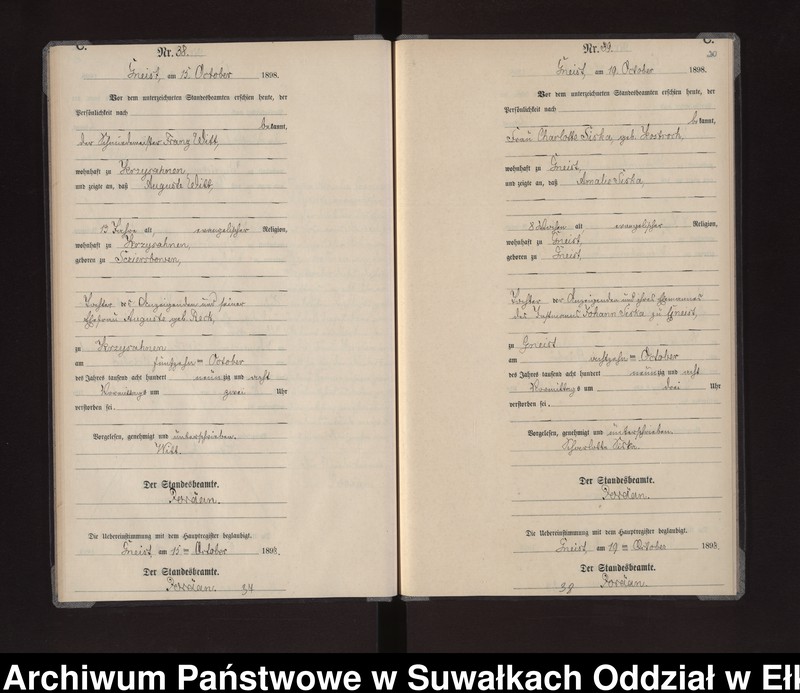 C.
Nr. 38.
Gneist, am 15 October 1898.
Vor dem unterzeichneten Standesbeamten erschien heute, der
Persönlichkeit nach
bekannt,
der Schmiedemeister Franz Witt,
wohnhaft zu Krzysahnen,
und zeigte an, daß Auguste Witt,
Jahre alt, evangelischer Religion,
wohnhaft zu Krzysahnen,
geboren zu
Tochter des Anzeigenden und seiner
Ehefrau Auguste geb. Reck,
zu Krzysahnen
am fünfzehn ten October
des Jahres tausend acht hundert neunzig und acht
Vormittags um zwei Uhr
verstorben sei.
Vorgelesen, genehmigt und unterschrieben.
Witt.
Der Standesbeamte.
Jordan.
Die Uebereinstimmung mit dem Hauptregister beglaubigt.
Gneist, am 15 ten October 1898.
Der Standesbeamte.
Jordan.
34
C.
Nr. 39.
Gneist, am 19. October 1898.
Vor dem unterzeichneten Standesbeamten erschien heute, der
Persönlichkeit nach
bekannt,
Frau Charlotte Siska, geb. Kostroch,
wohnhaft zu Gneist,
und zeigte an, daß Amalie Siska,
8 Wochen alt, evangelischer Religion,
wohnhaft zu Gneist,
geboren zu Gneist,
Tochter der Anzeigenden und ihres Ehemannes
des Instmannes Johann Siska zu Gneist,
zu Gneist
am achtzehn ten October
des Jahres tausend acht hundert neunzig und acht
Vormittags um drei Uhr
verstorben sei.
Vorgelesen, genehmigt und unterschrieben.
Charlotte Siska.
Der Standesbeamte.
Jordan.
Die Uebereinstimmung mit dem Hauptregister beglaubigt.
Gneist, am 19 ten October 1898.
Der Standesbeamte.
Jordan.
Archiwum Państwowe w Suwałkach Oddział w Ełk